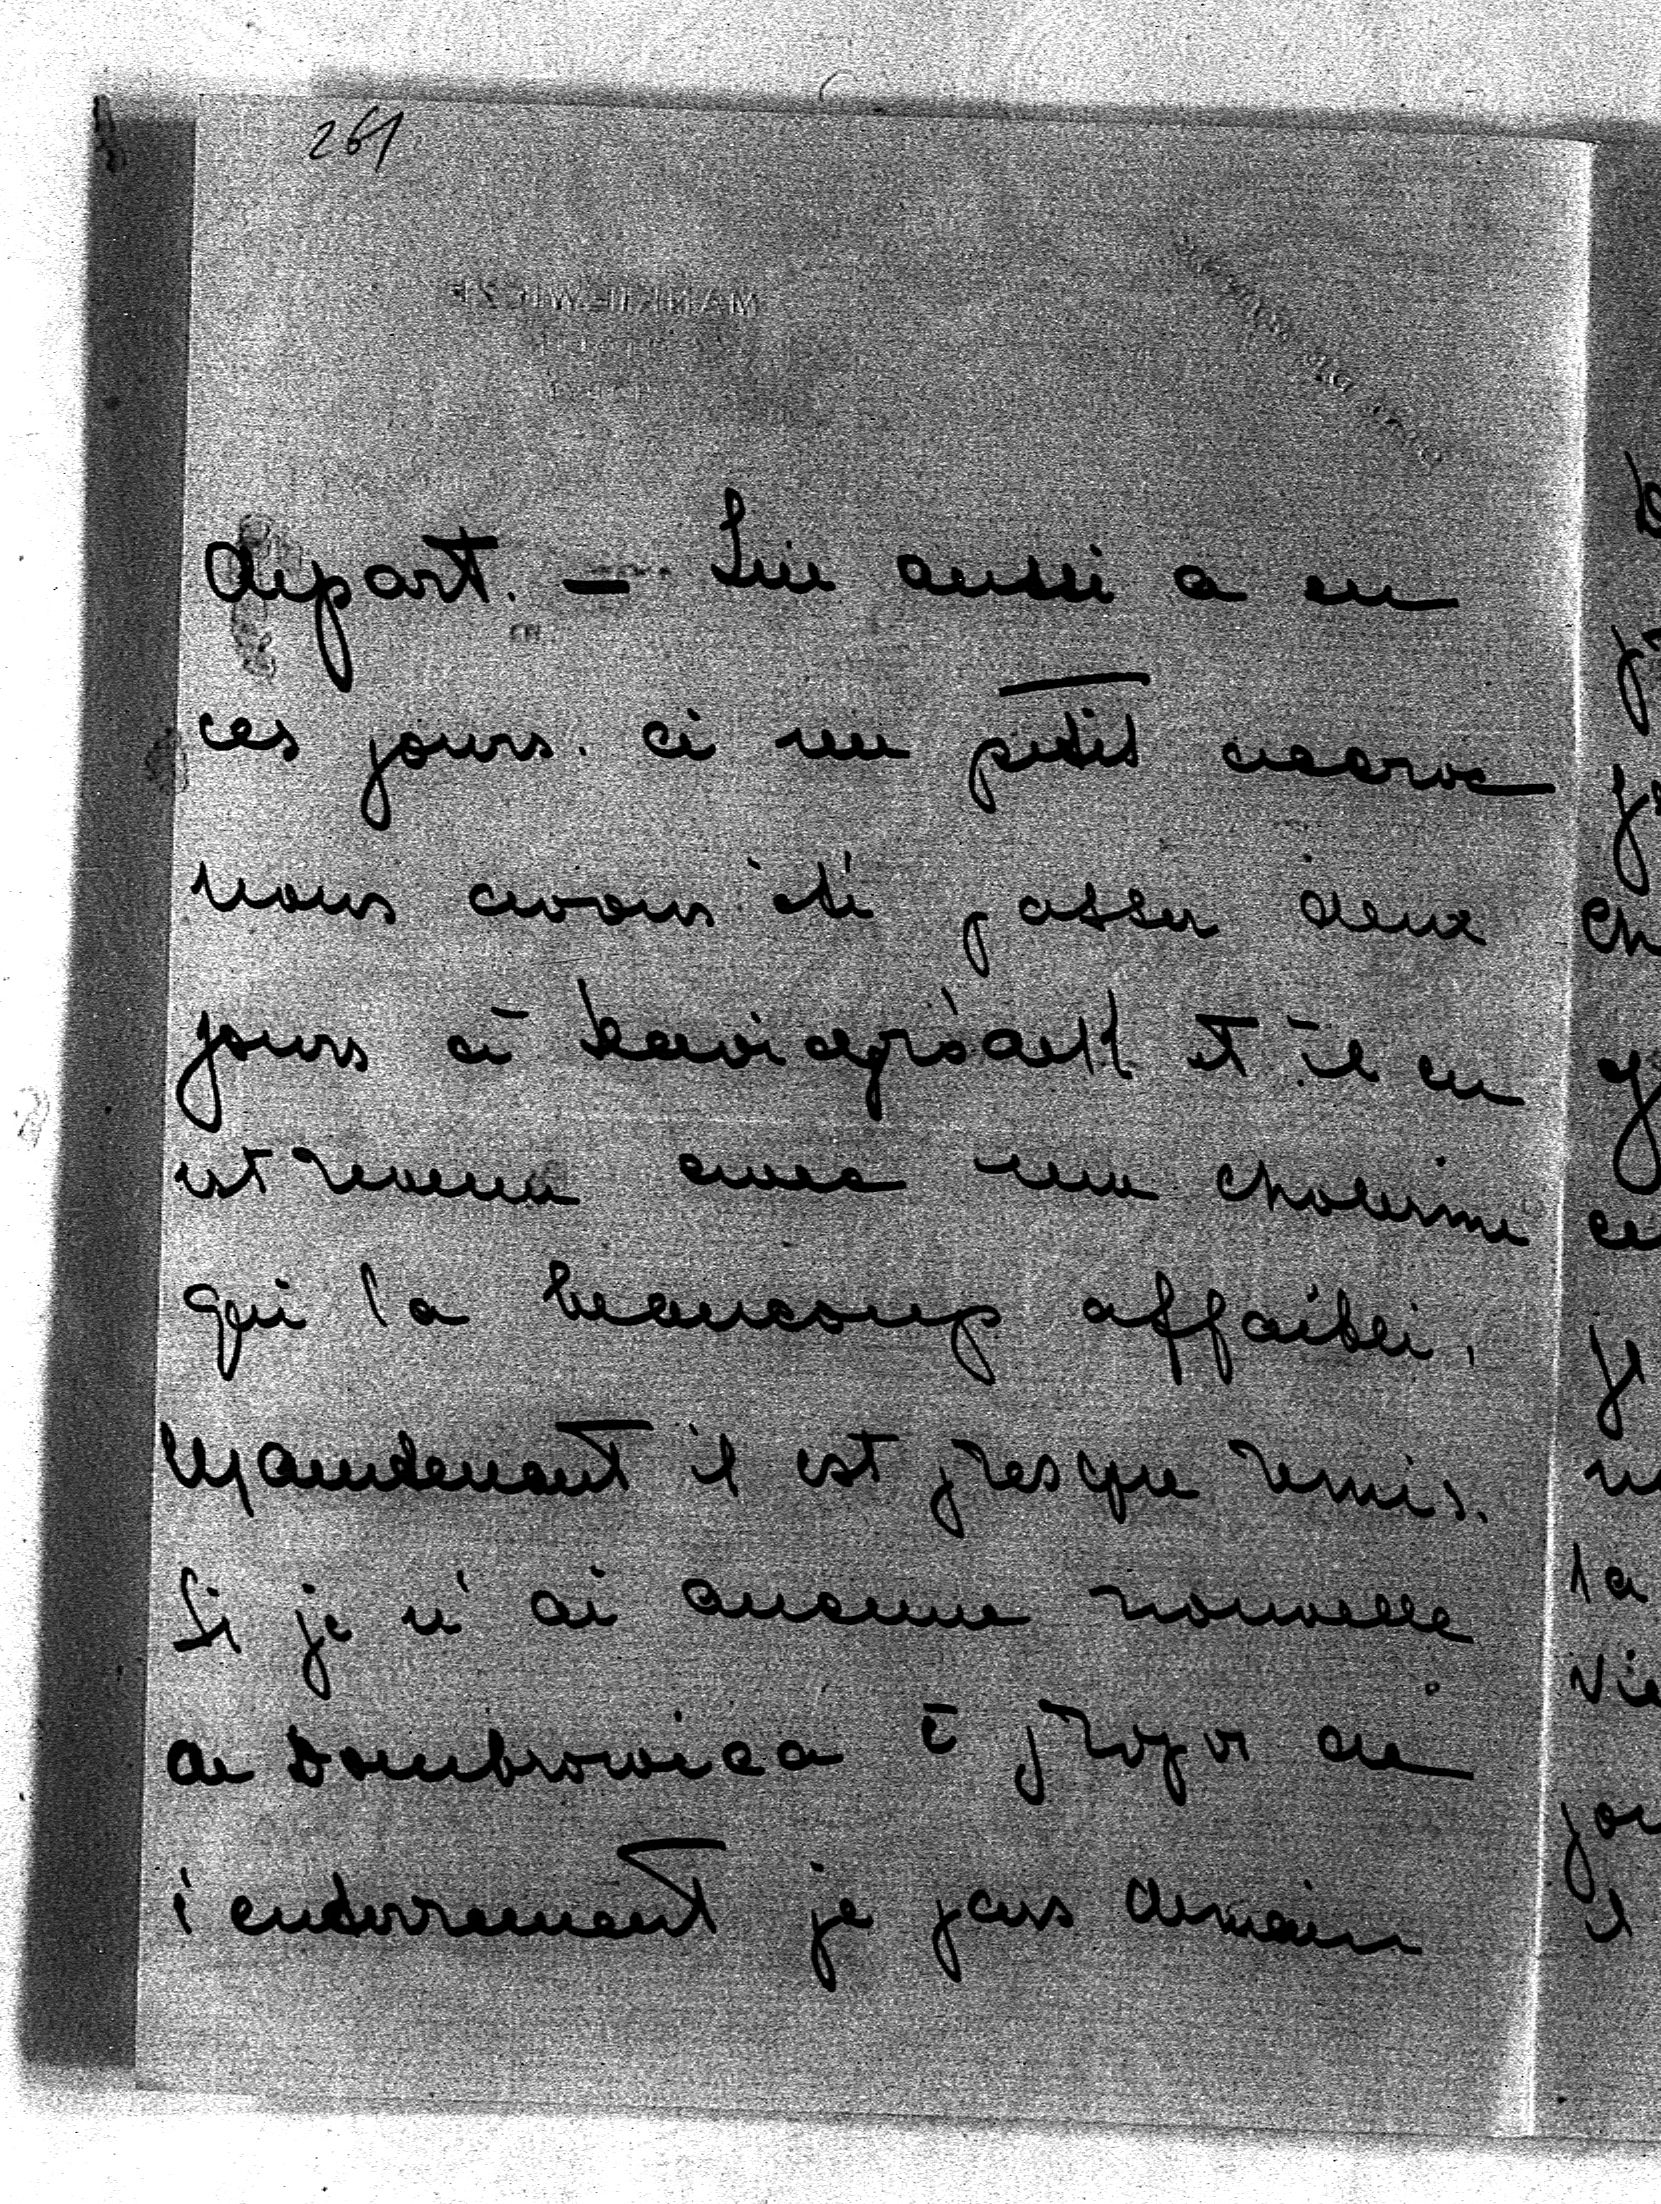 261
départ. — Lui aussi a eu
ces jours-ci un petit accroc
nous avons été passer deux
jours à et il en
est revenu avec une cholérine
qui l'a beaucoup affaibli,
Maintenant il est presque remis.
Si je n'ai aucune nouvelle
de Dombrowica à propos de
l'enterrement je pars demain